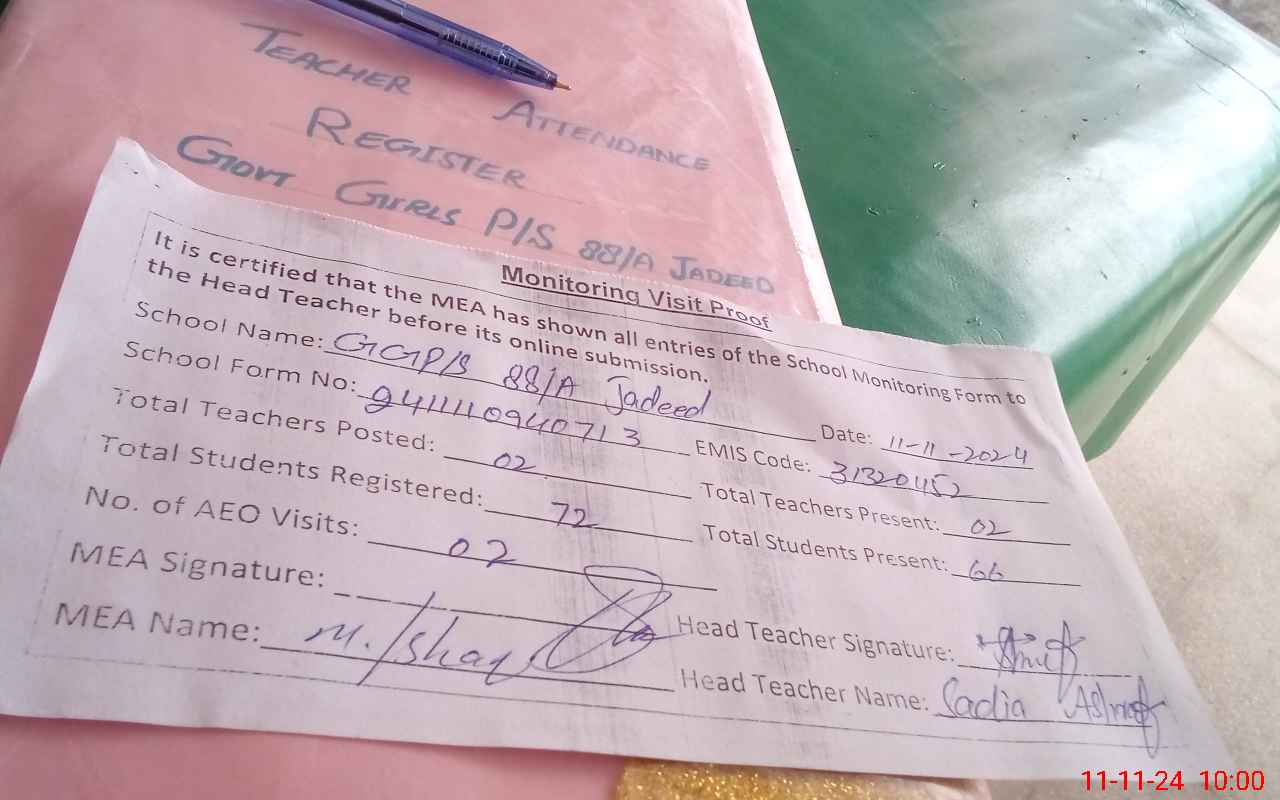 TEACHER ATTENDANCE
REGISTER
GOVT GIRLS P/S 88/A JADEED
Monitoring Visit Proof
It is certified that the MEA has shown all entries of the School Monitoring Form to
the Head Teacher before its online submission.
School Name: GGP/S 88/A Jadeed Date: 11-11-2024
School Form No: 9411110940713 EMIS Code: 31320452
Total Teachers Posted: 02 Total Teachers Present: 02
Total Students Registered: 72 Total Students Present: 66
No. of AEO Visits: 02
MEA Signature: Head Teacher Signature:
MEA Name: M. Ishaq Head Teacher Name: Sadia Ashraf
11-11-24 10:00